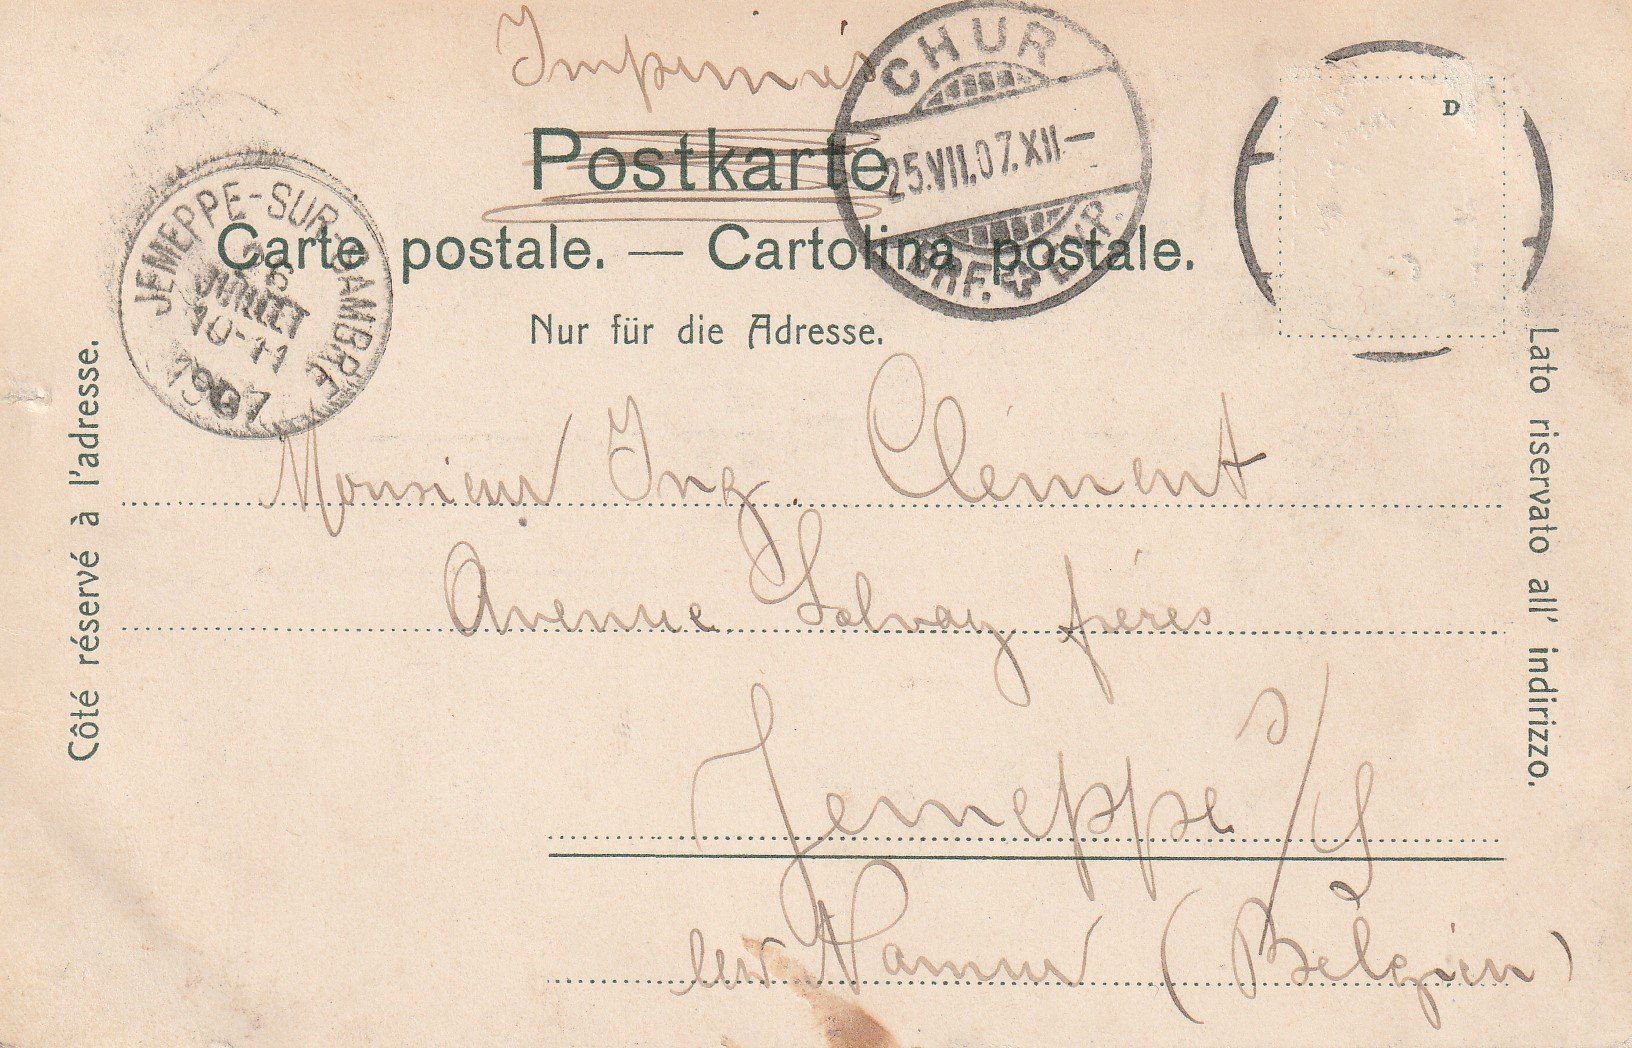 Imprimés
CHUR
25.VII.07.XII-
BRF.
D
Postkarte
Carte postale. — Cartolina postale.
Nur für die Adresse.
JEMEPPE-SUR-SAMBRE
26
JUILLET
10-11
1907
Côté réservé à l'adresse.
Lato riservato all' indirizzo.
Monsieur Ing. Clément
Avenue Solvay frères
Jemeppe s/S
Namur (Belgien)